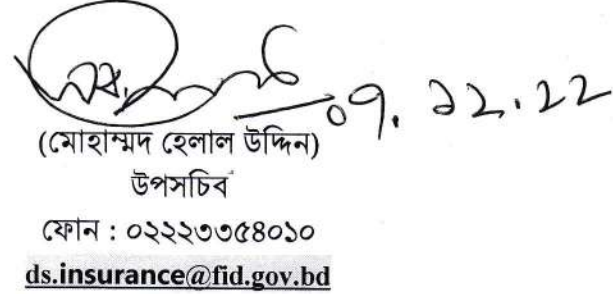 ০৭. ১২. ২২
(মোহাম্মদ হেলাল উদ্দিন)
উপসচিব
ফোন : ০২২২৩৩৫৪০১০
ds.insurance@fid.gov.bd